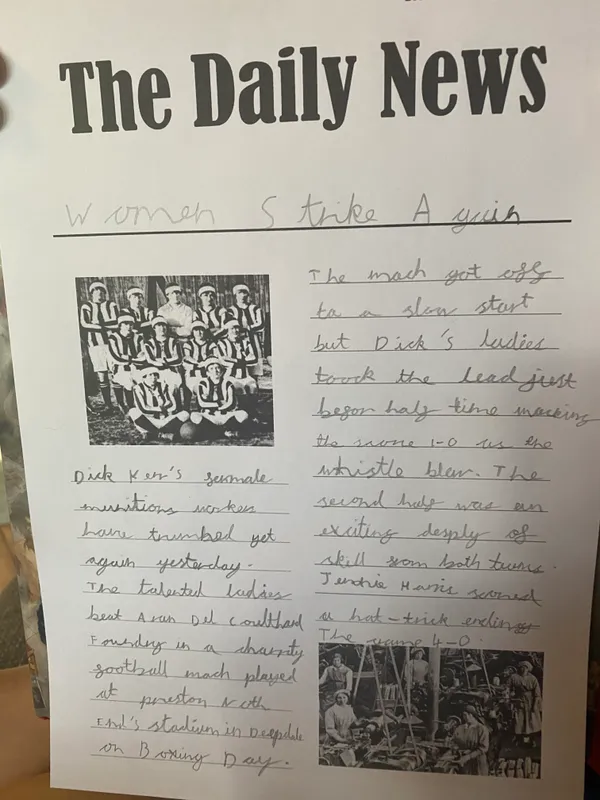 The Daily News
Women Strike Again
Dick Kerr's fermale
munitions worker
have trumbed yet
again yesterday.
The talented ladies
beat Arun Del Coulthard
Foundry in a charity
football mach played
at preston North
End's stadium in Deepdale
on Boxing Day.
The mach got off
to a slow start
but Dick's ladies
toock the lead just
befor half time macking
the score 1-0 as the
whistle blew. The
second half was an
exciting desply of
skill from both teams.
Jennie Harris scored
a hat-trick ending
The game 4-0.